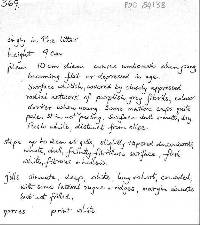 369.
PDD 89138
singly in Pine litter
height 9 cm
pileus 10 cm diam convex umbonate when young
becoming flat or depressed in age.
Surface whitish, covered by closely appressed
radial network of purplish grey fibrils, colour
darker when young. Some mature caps quite
pale. not peeling. Surface dull smooth, dry
Flesh white, distinct from stipe.
stipe up to 2cm at gills, slightly tapered downwards,
smooth, dull, faintly fibrillose surface, flesh
white, fibrous
gills sinuate, deep, white buy robust, crowded,
with some lateral rugae or ridges, margin sinuate
but not forked,
spores print white